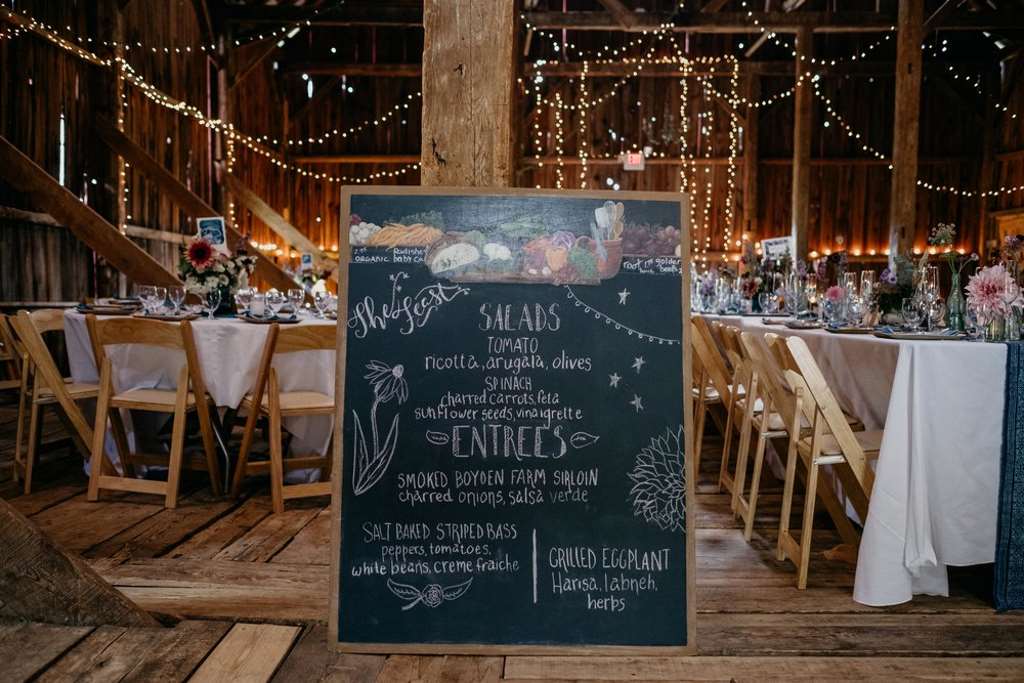 ORGANIC
Radishes
baby ca
root
golden
beets
The Feast
SALADS
TOMATO
ricotta, arugala, olives
SPINACH
charred carrots, feta
sunflower seeds, vinaigrette
ENTREES
SMOKED BOYDEN FARM SIRLOIN
charred onions, salsa verde
SALT BAKED STRIPED BASS
peppers, tomatoes,
white beans, creme fraiche
GRILLED EGGPLANT
Harisa, labneh,
herbs